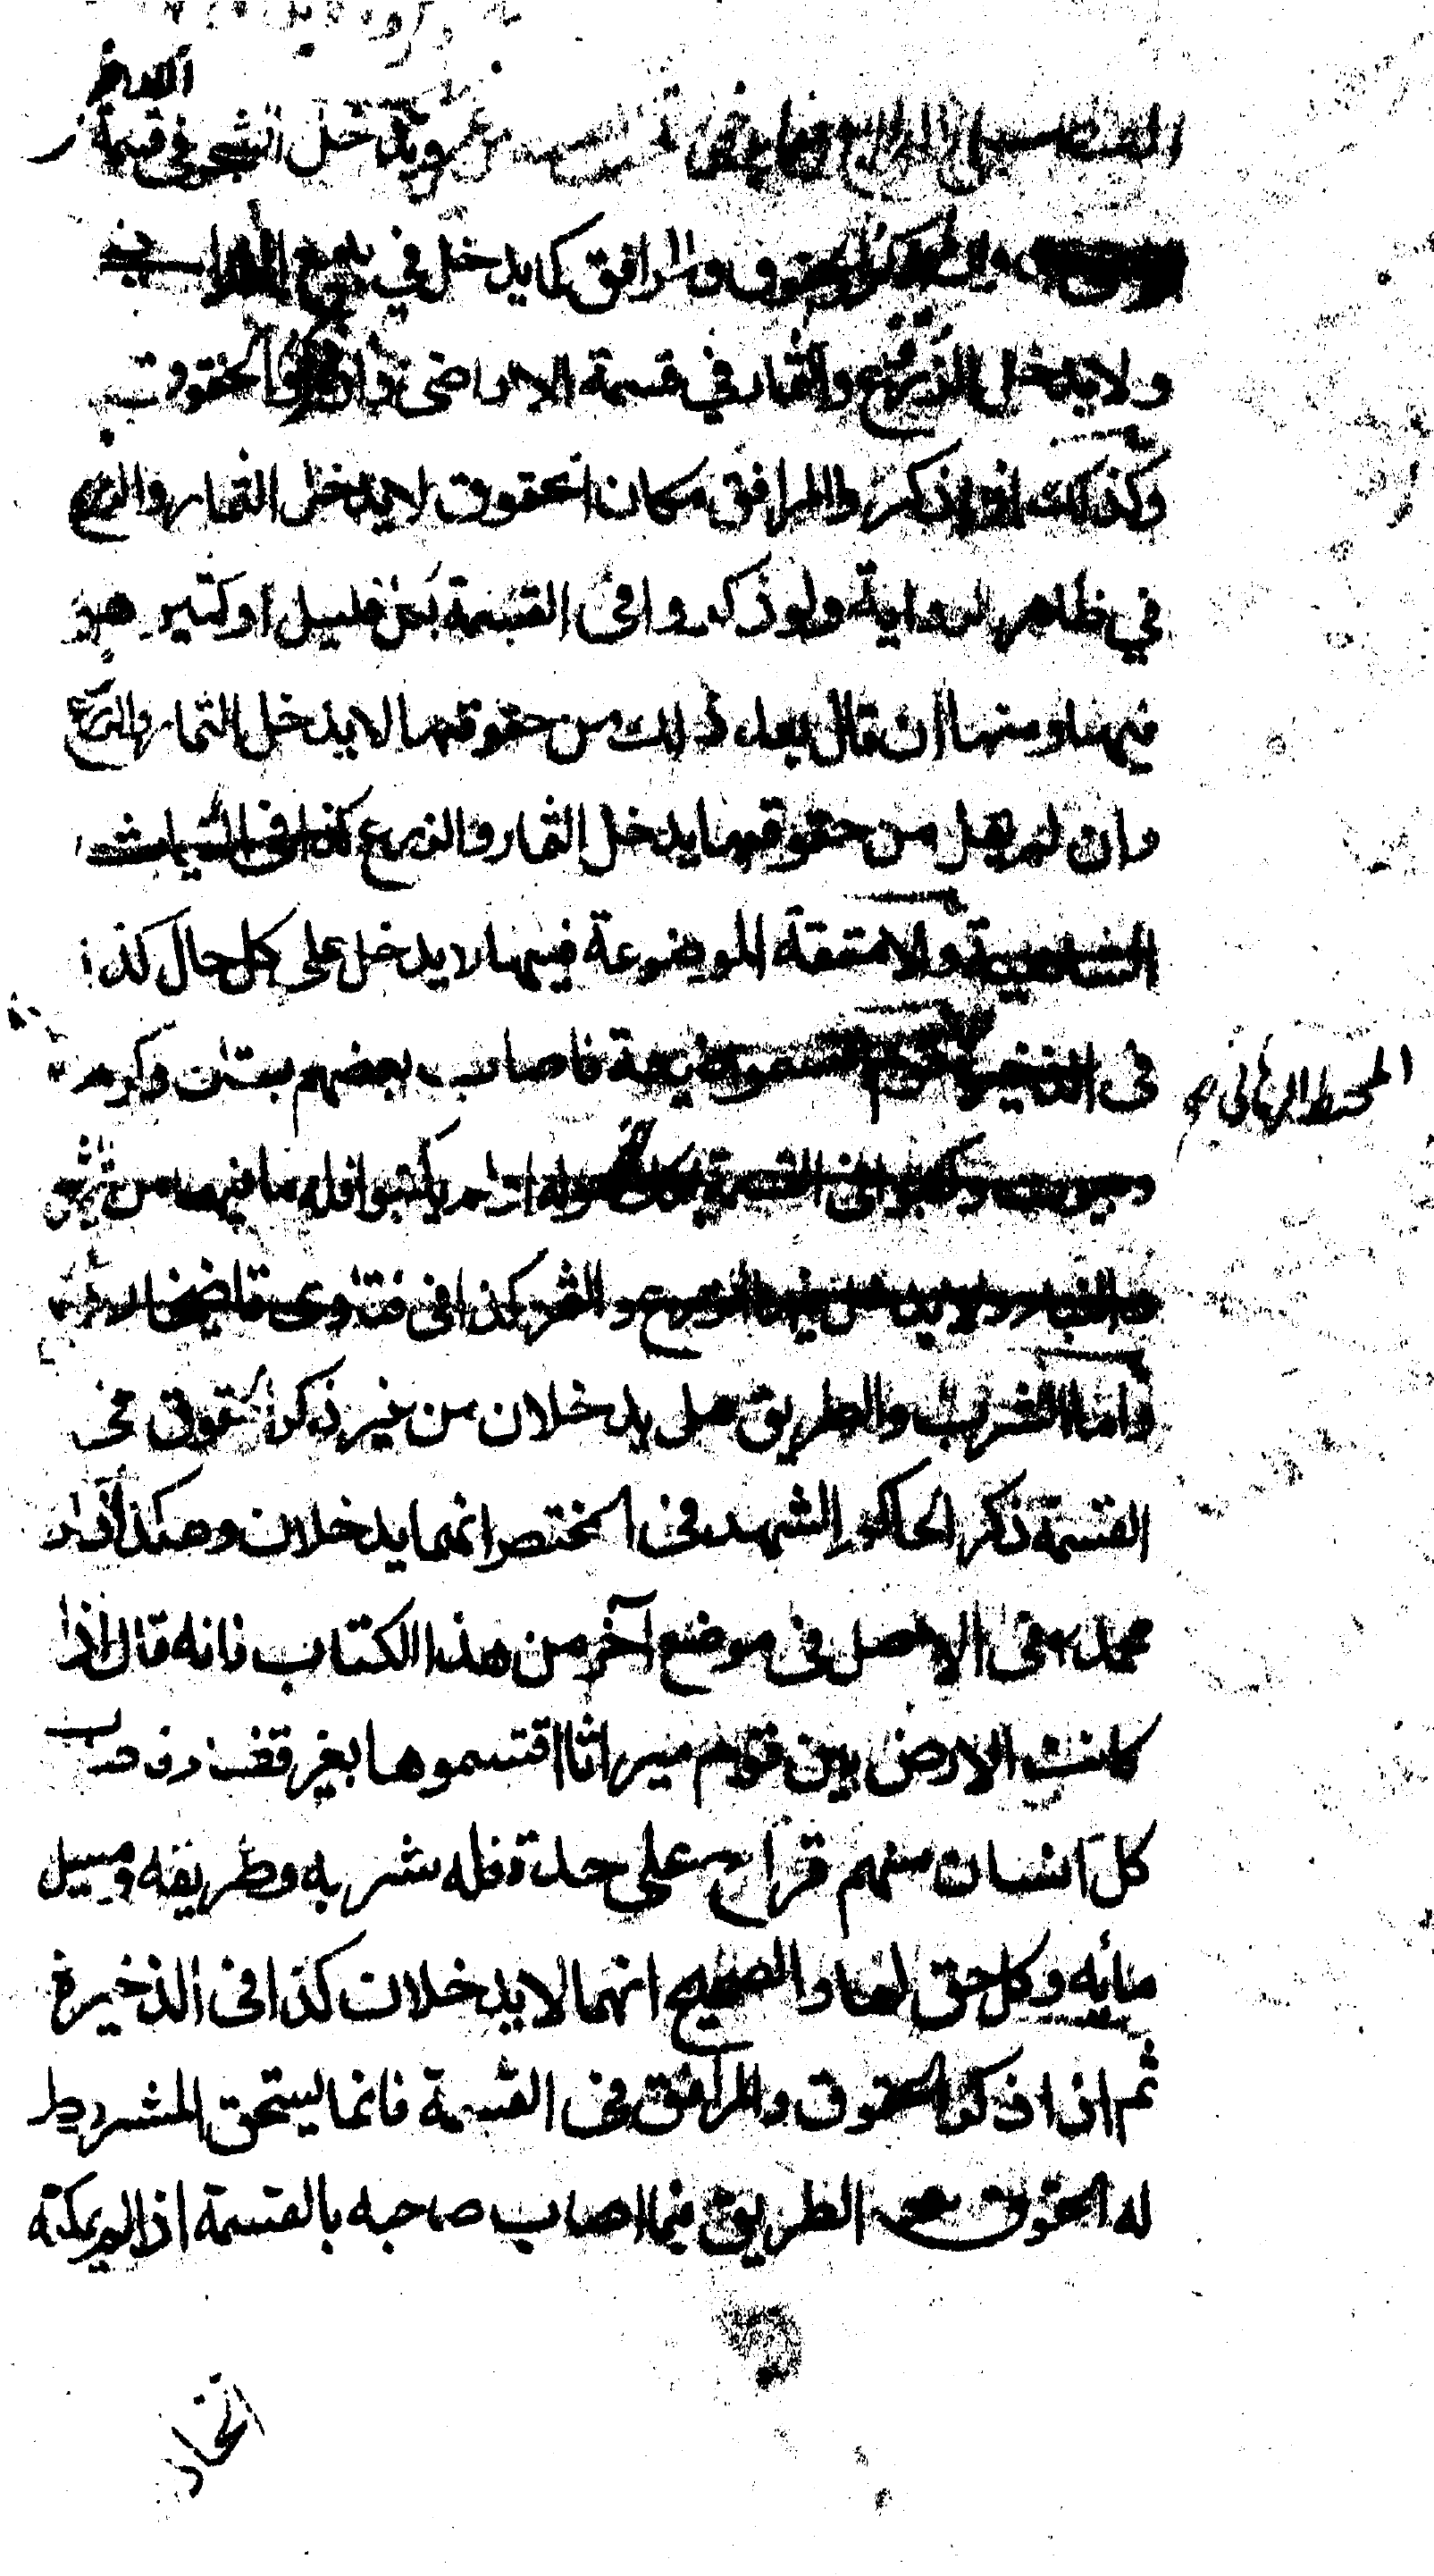 ويدخل الشجر في قسمة
الحقوق والمرافق كما يدخل في بيع
ولا يدخل الزرع والثمار في قسمة الاراضى وان ذكروا الحقوق
وكذلك اذا ذكر والمرافق مكان الحقوق لا يدخل الثمار والزرع
في ظاهر الرواية ولو ذكروا في القسمة بكل قليل او كثير هو
فيها ومنها ان قال بعد ذلك من حقوقها لا يدخل الثمار والزرع
وان لم يقل من حقوقها يدخل الثمار والزرع كذا في
والامتعة الموضوعة فيها لا يدخل على كل حال كذا
المحيط البرهانى
فى الذخيرة قوم اقتسموا ضيعة فاصاب بعضهم بستان وكرم
وبيوت وكتبوا فى القسمة بكل حق هو له او لم يكتبوا فله ما فيها من الشجر
والبناء ولا يدخل فيها الزرع والثمر كذا فى فتاوى قاضيخان
واما الشرب والطريق هل يدخلان من غير ذكر الحقوق فى
القسمة ذكر الحاكم الشهيد فى المختصر انهما يدخلان وهكذا
محمد فى الاصل فى موضع آخر من هذا الكتاب فانه قال اذا
كانت الارض بين قوم ميراثا اقتسموها بغير قضاء فاصاب
كل انسان منهم قراح على حدة فله شربه وطريقه ومسيل
مائه وكل حق لها والصحيح انهما لا يدخلان كذا فى الذخيرة
ثم اذا ذكروا الحقوق والمرافق فى القسمة فانما يستحق المشروط
له الحقوق الطريق فيما اصاب صاحبه بالقسمة اذا لم يمكنه